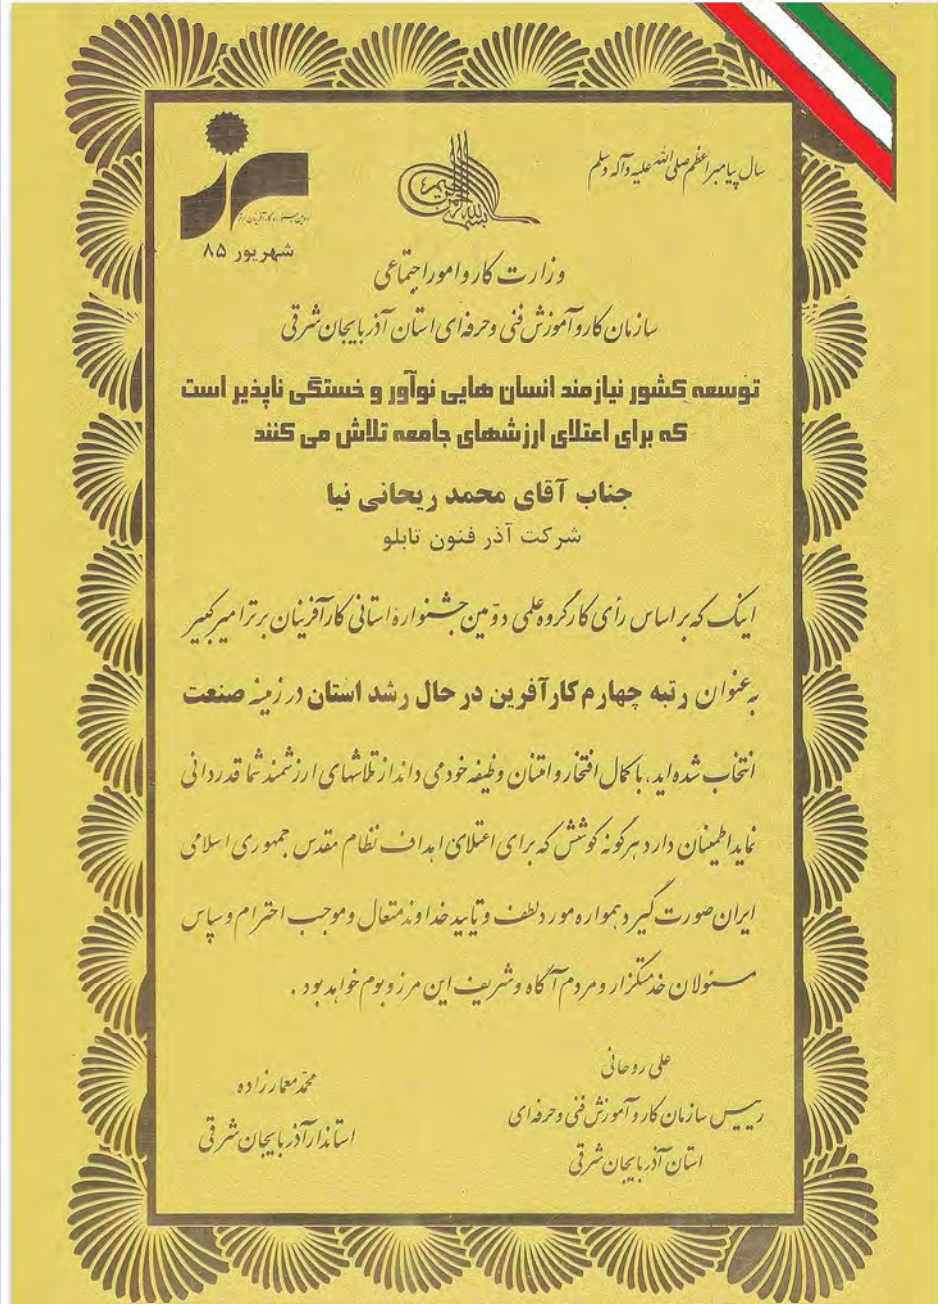 سال پیامبر اعظم صلی الله علیه و آله وسلم
بسم الله الرحمن الرحیم
دومین جشنواره کارآفرینان برتر
شهریور ۸۵
وزارت کار و امور اجتماعی
سازمان کار و آموزش فنی و حرفه‌ای استان آذربایجان شرقی
توسعه کشور نیازمند انسان هایی نوآور و خستگی ناپذیر است
که برای اعتلای ارزشهای جامعه تلاش می کنند
جناب آقای محمد ریحانی نیا
شرکت آذر فنون تابلو
اینک که بر اساس رأی کارگروه علمی دومین جشنواره استانی کارآفرینان برتر امیرکبیر
به عنوان رتبه چهارم کارآفرین در حال رشد استان در زمینه صنعت
انتخاب شده اید، با کمال افتخار و امتنان وظیفه خود می داند از تلاشهای ارزشمند شما قدردانی
نماید اطمینان دارد هرگونه کوشش که برای اعتلای اهداف نظام مقدس جمهوری اسلامی
ایران صورت گیرد همواره مورد لطف و تایید خداوند متعال و موجب احترام و سپاس
مسئولان خدمتگزار و مردم آگاه و شریف این مرز و بوم خواهد بود .
علی روحانی
رییس سازمان کار و آموزش فنی و حرفه‌ای
استان آذربایجان شرقی
محمد معمارزاده
استاندار آذربایجان شرقی